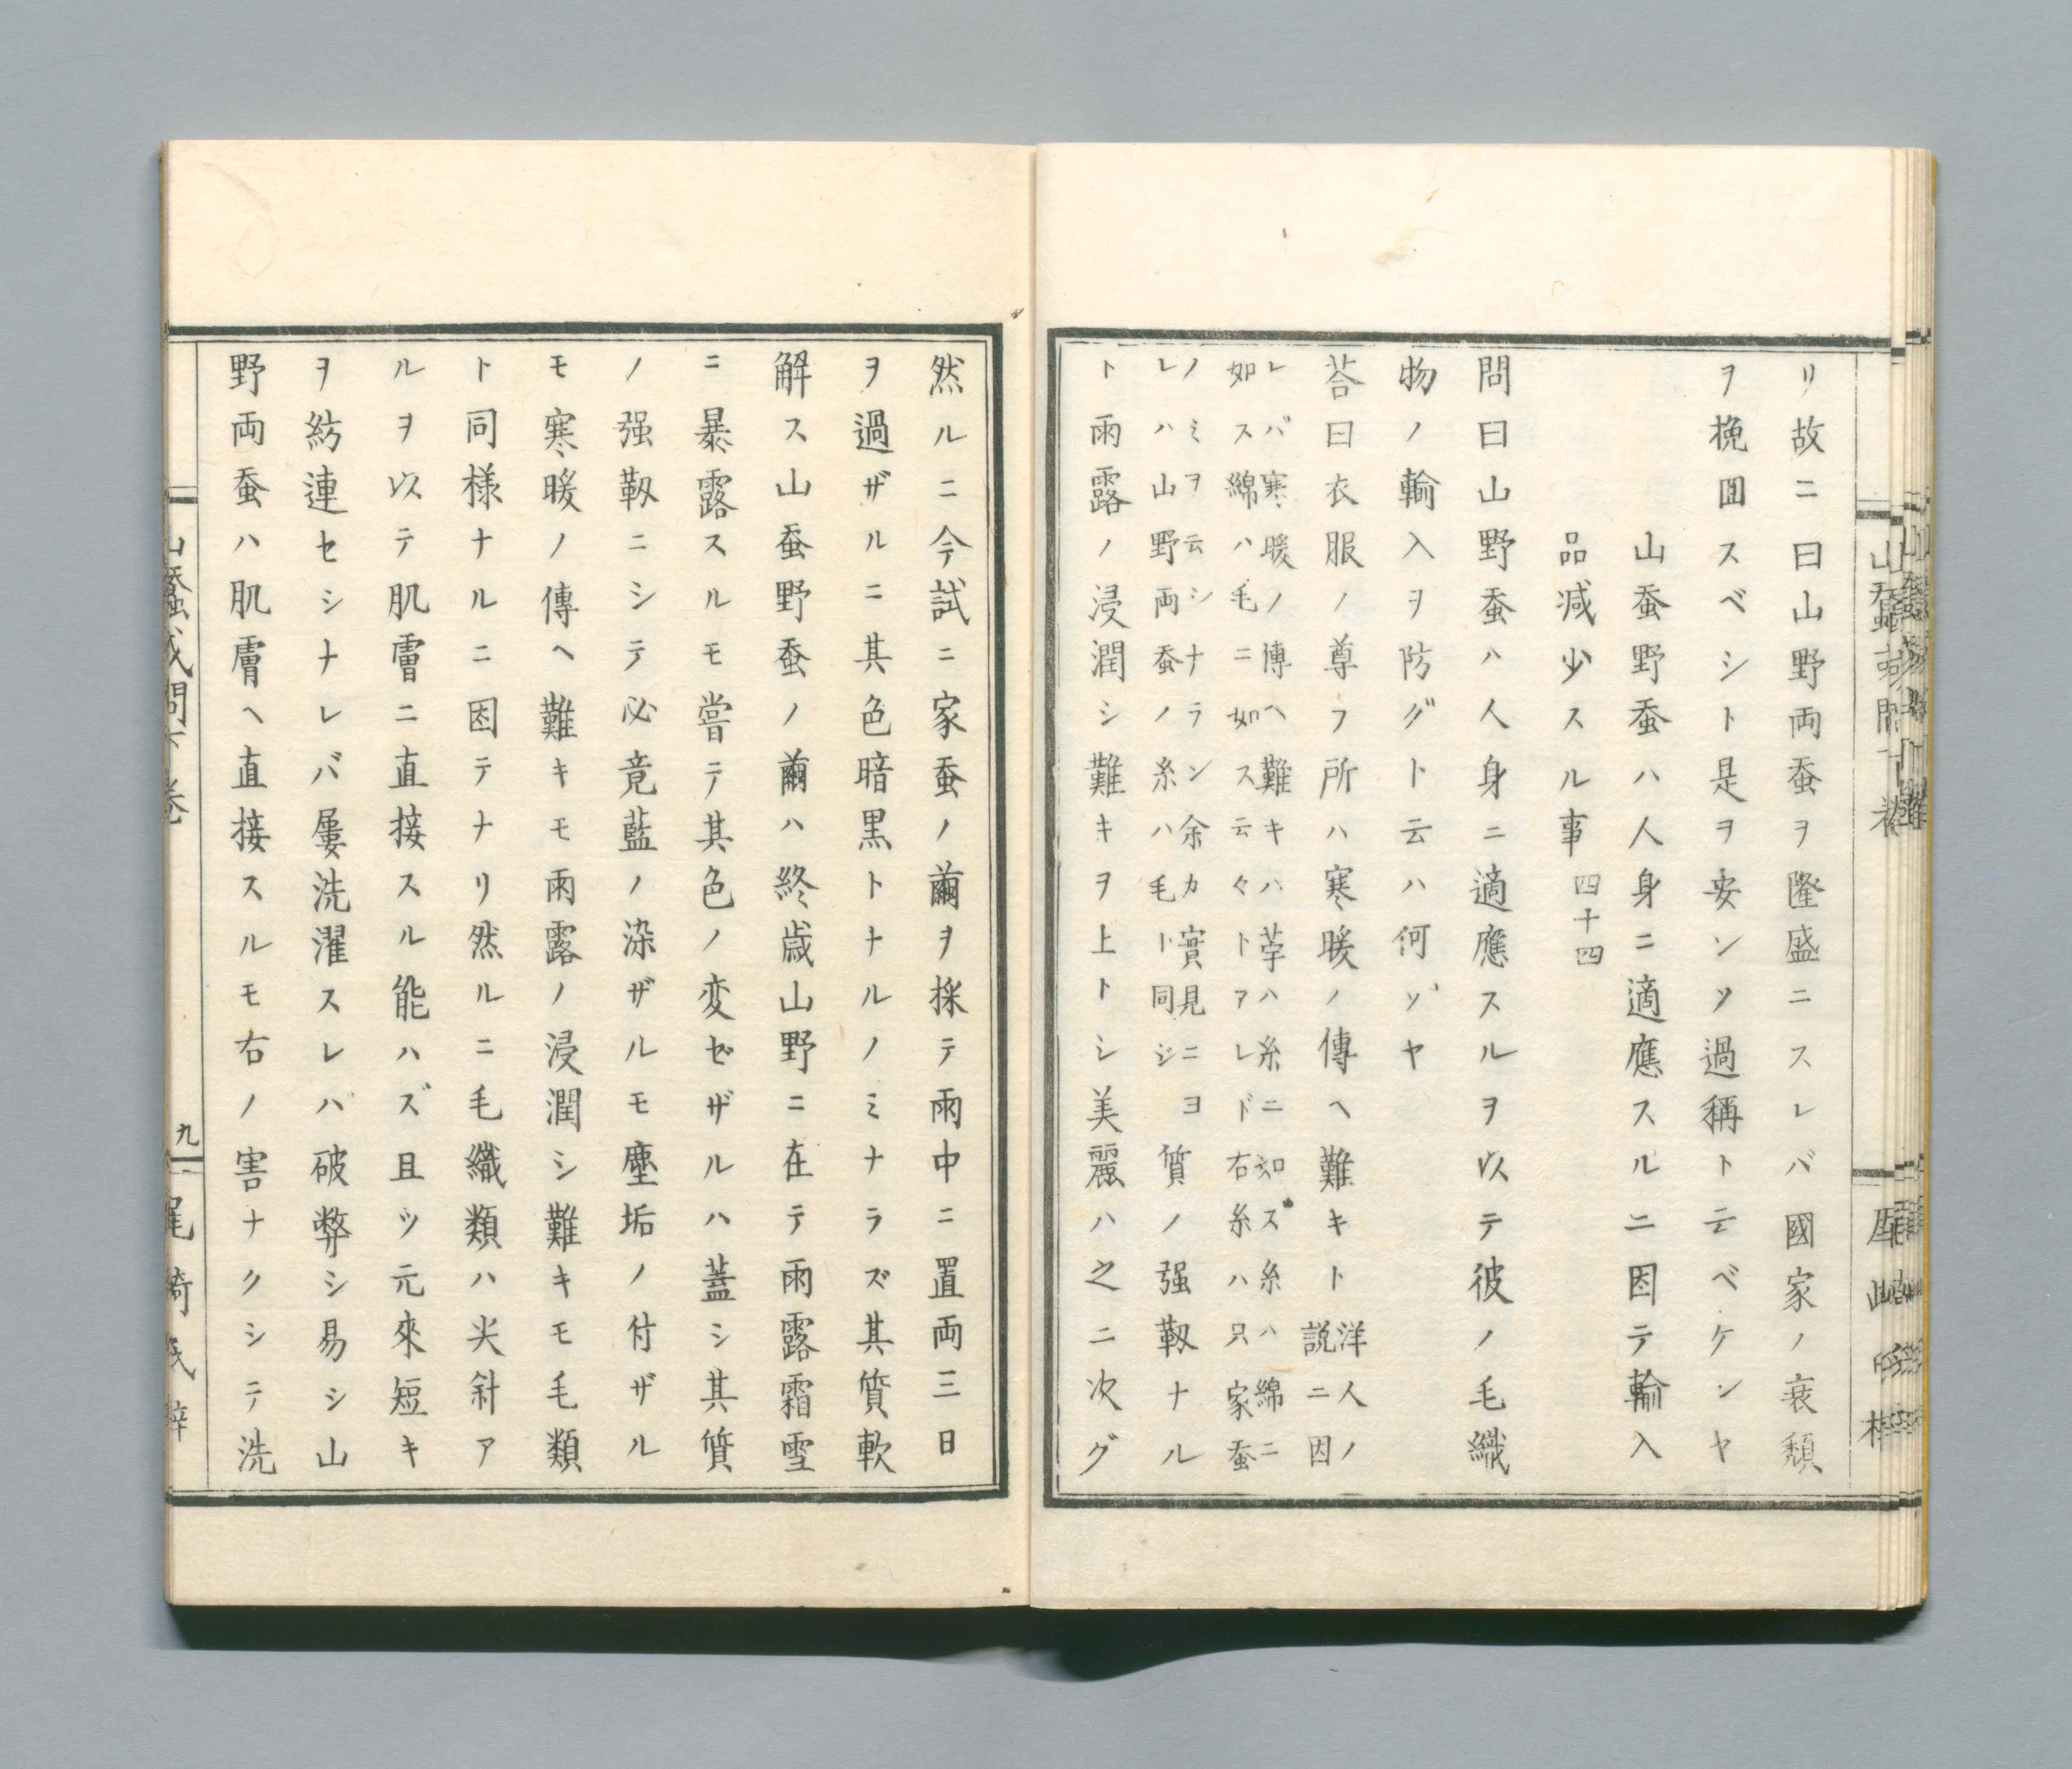 リ故ニ曰山野両蚕ヲ隆盛ニスレバ國家ノ衰頽
ヲ挽囬スベシト是ヲ安ンゾ過稱ト云ベケンヤ
山蚕野蚕ハ人身ニ適應スルニ因テ輸入
品减少スル事 四十四
問曰山野蚕ハ人身ニ適應スルヲ以テ彼ノ毛織
物ノ輸入ヲ防グト云ハ何ゾヤ
荅曰衣服ノ尊フ所ハ寒暖ノ傳ヘ難キト
洋人ノ
説ニ因
レバ寒暖ノ傳ヘ難キハ葶ハ糸ニ如ズ糸ハ綿ニ
如ス綿ハ毛ニ如ス云々トアレド右糸ハ只家蚕
ノミヲ云シナラン余カ實見ニヨ
レハ山野両蚕ノ糸ハ毛ト同ジ
質ノ强靱ナル
ト雨露ノ浸潤シ難キヲ上トシ美麗ハ之ニ次グ
然ルニ今試ニ家蚕ノ繭ヲ採テ雨中ニ置両三日
ヲ過ザルニ其色暗黒トナルノミナラズ其質軟
解ス山蚕野蚕ノ繭ハ終歳山野ニ在テ雨露霜雪
ニ暴露スルモ嘗テ其色ノ変ゼザルハ蓋シ其質
ノ强靱ニシテ必竟藍ノ染ザルモ塵垢ノ付ザル
モ寒暖ノ傳ヘ難キモ雨露ノ浸潤シ難キモ毛類
ト同様ナルニ因テナリ然ルニ毛織類ハ尖針ア
ルヲ以テ肌膚ニ直接スル能ハズ且ツ元來短キ
ヲ紡連セシナレバ屢洗濯スレバ破弊シ易シ山
野両蚕ハ肌膚ヘ直接スルモ右ノ害ナクシテ洗
山蠶或問下巻
九